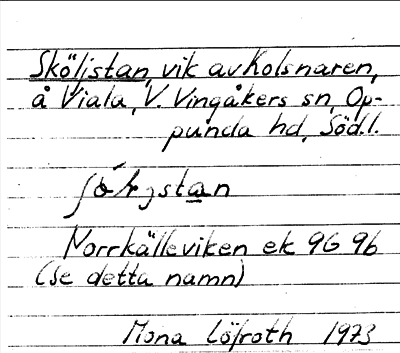 Sköljstan, vik av Kolsnaren,
å Viala, V. Vingåkers sn, Op-
punda hd, Södl.
Norrkälleviken ek 9G 9b
(se detta namn)
Mona Löfroth 1973